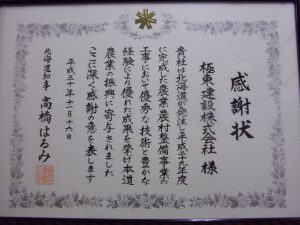 感謝状
極東建設株式会社 様
貴社は北海道が発注し平成二十九年度
に完成した農業農村整備事業の
工事において優秀な技術と豊かな
経験により優れた成果を挙げ本道
農業の振興に寄与されました
ここに深く感謝の意を表します
平成三十年十一月十六日
北海道知事 高橋はるみ